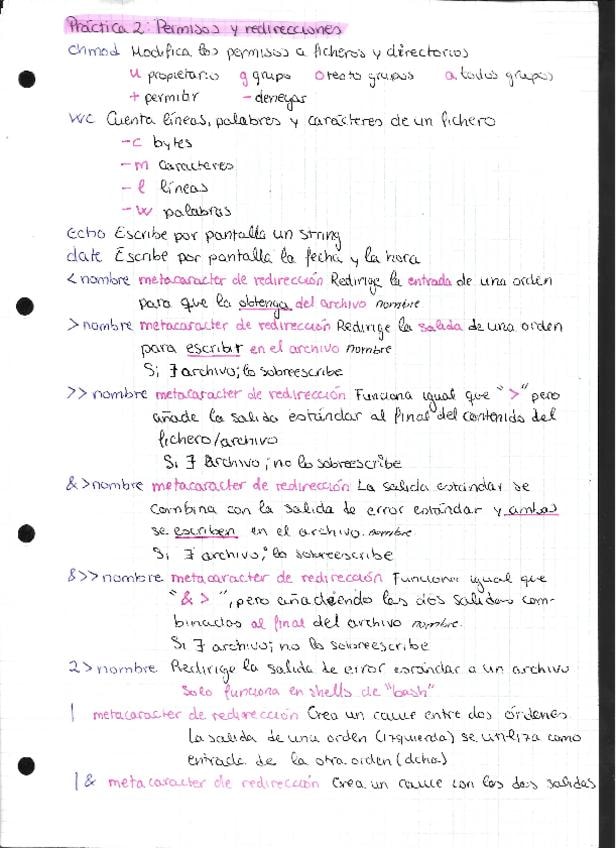 Práctica 2: Permisos y redirecciones
chmod Modifica los permisos a ficheros y directorios
u propietario g grupo o resto grupos a todos grupos
+ permitir - denegar
wc Cuenta líneas, palabras y carácteres de un fichero
-c bytes
-m caracteres
-l líneas
-w palabras
echo Escribe por pantalla un string
date Escribe por pantalla la fecha y la hora
<nombre metacaracter de redirección Redirige la entrada de una orden
para que la obtenga del archivo nombre
>nombre metacaracter de redirección Redirige la salida de una orden
para escribir en el archivo nombre
Si ∃ archivo; lo sobreescribe
>>nombre metacaracter de redirección Funciona igual que ">" pero
añade la salida estándar al final del contenido del
fichero/archivo
Si ∃ archivo; no lo sobreescribe
&>nombre metacaracter de redirección La salida estándar se
combina con la salida de error estándar y ambas
se escriben en el archivo nombre
Si ∃ archivo; lo sobreescribe
&>>nombre metacaracter de redirección Funciona igual que
"&>", pero añadiendo las dos salidas com-
binadas al final del archivo nombre.
Si ∃ archivo; no lo sobreescribe
2>nombre Redirige la salida de error estándar a un archivo
Solo funciona en shells de "bash"
| metacaracter de redirección Crea un cauce entre dos órdenes
La salida de una orden (izquierda) se utiliza como
entrada de la otra orden (dcha)
|& metacaracter de redirección Crea un cauce con las dos salidas